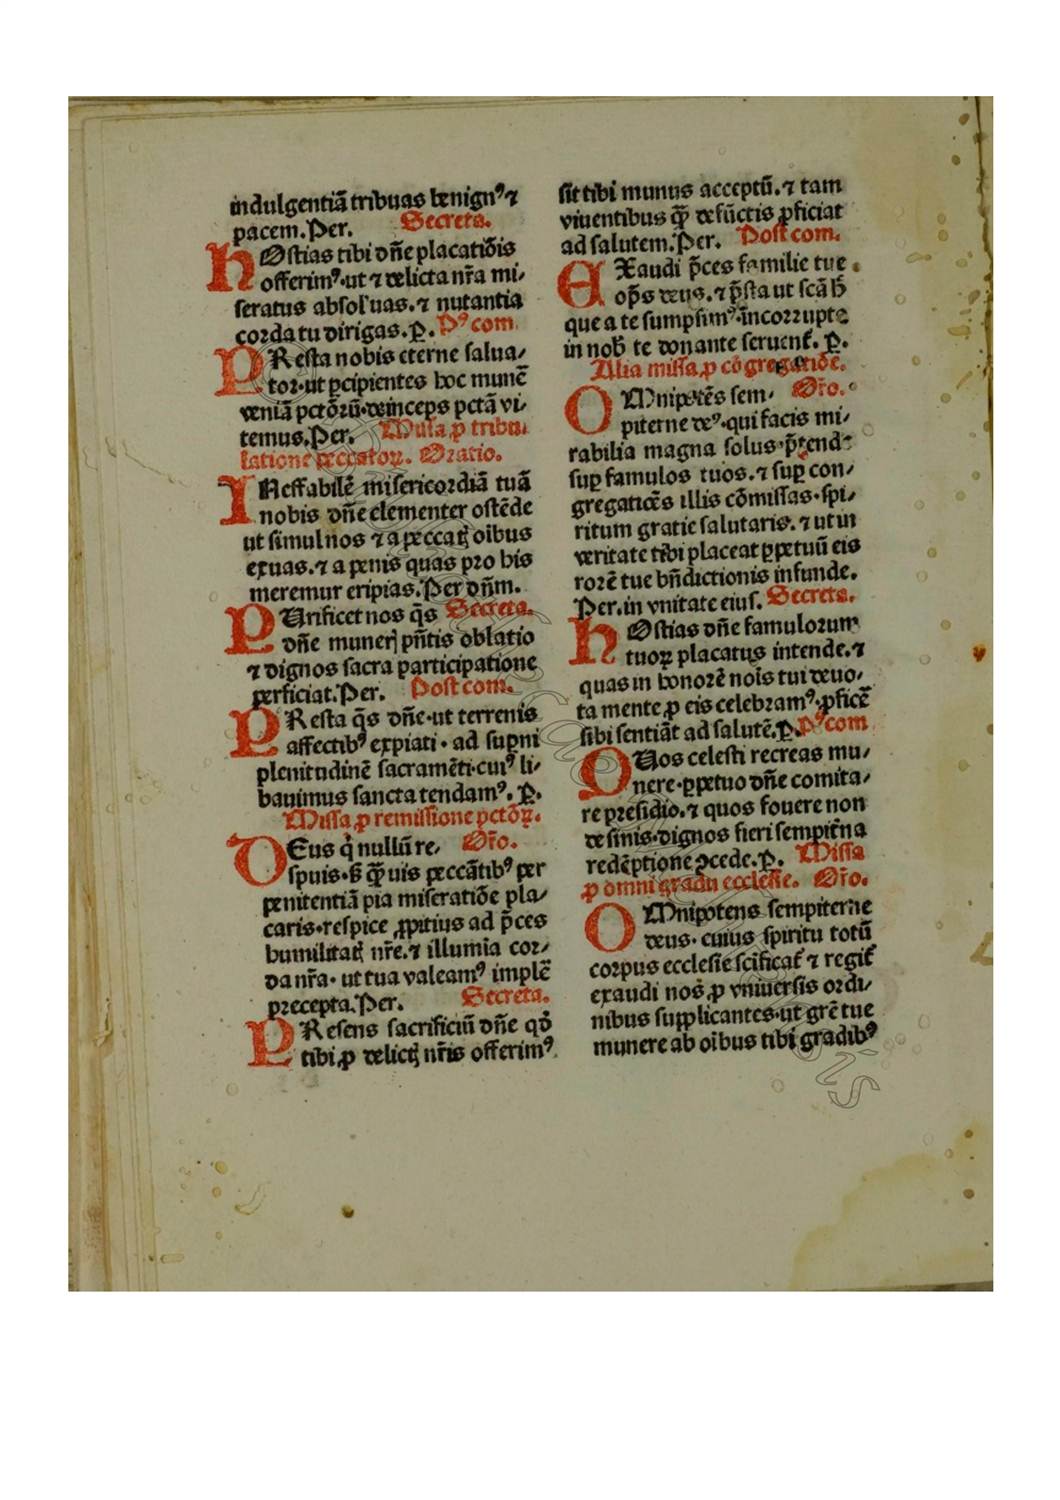 indulgentiā tribuas benignꝰ ⁊
pacem. Per. Secreta.
hOstias tibi dn̄e placatiōis
offerimꝰ. ut ⁊ delicta nr̄a mi⸗
seratus absoluas. ⁊ nutantia
corda tu dirigas. P̱. Pꝰ com
PResta nobis eterne salua⸗
tor. ut ꝑcipientes hoc munꝰ̄
veniā pctōrū. deinceps pctā vi⸗
temus. Per. Missa ꝓ tribu⸗
latione peccatoꝝ. Oratio.
INeffabilē misericordiā tuā
nobis dn̄e clementer ostēde
ut simul nos ⁊ a peccatꝭ oibus
exuas. ⁊ a penis quas pro his
meremur eripias. Per dn̄m.
PUrificet nos q̄s Secreta.
dn̄e munerꝭ pn̄tis oblatio
⁊ dignos sacra participatione
perficiat. Per. Post com.
PResta q̄s dn̄e. ut terrenis
affectibꝰ expiati. ad suꝑni
plenitudinē sacramēti. cuiꝰ li⸗
bauimus sancta tendamꝰ. P̱.
Missa ꝓ remissione pctōꝝ.
DEus q̇ nullū re⸗ Or̄o.
spuis. sꝫ q̄ȝuis peccātibꝰ per
penitentiā pia miseratiōe pla⸗
caris. respice ꝓpitius ad p̄ces
humilitatꝭ nr̄e. ⁊ illumia cor⸗
da nr̄a. ut tua valeamꝰ implē
precepta. Per. Secreta.
PResens sacrificiū dn̄e qd̓
tibi ꝓ delictꝭ nr̄is offerimꝰ
sit tibi munus acceptū. ⁊ tam
viuentibus q̄ȝ defūctis ꝓficiat
ad salutem. Per. Post com.
EXaudi p̄ces familie tue
op̄s deus. ⁊ p̄sta ut scā hꝫ
que a te sumpsimꝰ. incorrupta
in nobꝫ te donante seruent᷑. P̱.
Alia missa ꝓ cōgregatiōe.
OMnipotēs sem⸗ Or̄o.
piterne deꝰ. qui facis mi⸗
rabilia magna solus. p̄tende
suꝑ famulos tuos. ⁊ suꝑ con⸗
gregatiōes illis cōmissas. spi⸗
ritum gratie salutaris. ⁊ ut in
veritate tibi placeat ꝑpetuū eis
rorē tue bn̄dictionis infunde.
Per. in vnitate eius. Secreta.
hOstias dn̄e famulorum
tuoꝝ placatus intende. ⁊
quas in honorē nois tui deuo⸗
ta mente ꝓ eis celebramꝰ. ꝓficē
sibi sentiāt ad salutē. P̱. Pꝰ com
QUos celesti recreas mu⸗
nere. ꝑpetuo dn̄e comita⸗
re presidio. ⁊ quos fouere non
desinis. dignos fieri sempit̓na
redēptione ↄcede. P̱. Missa
ꝓ omni gradu ecclesie. Or̄o.
OMnipotens sempiterne
deus. cuius spiritu totū
corpus ecclesie scificat᷑ ⁊ regit᷑
exaudi nos ꝓ vniuersis ordi⸗
nibus supplicantes. ut grē tue
munere ab oibus tibi gradibꝰ